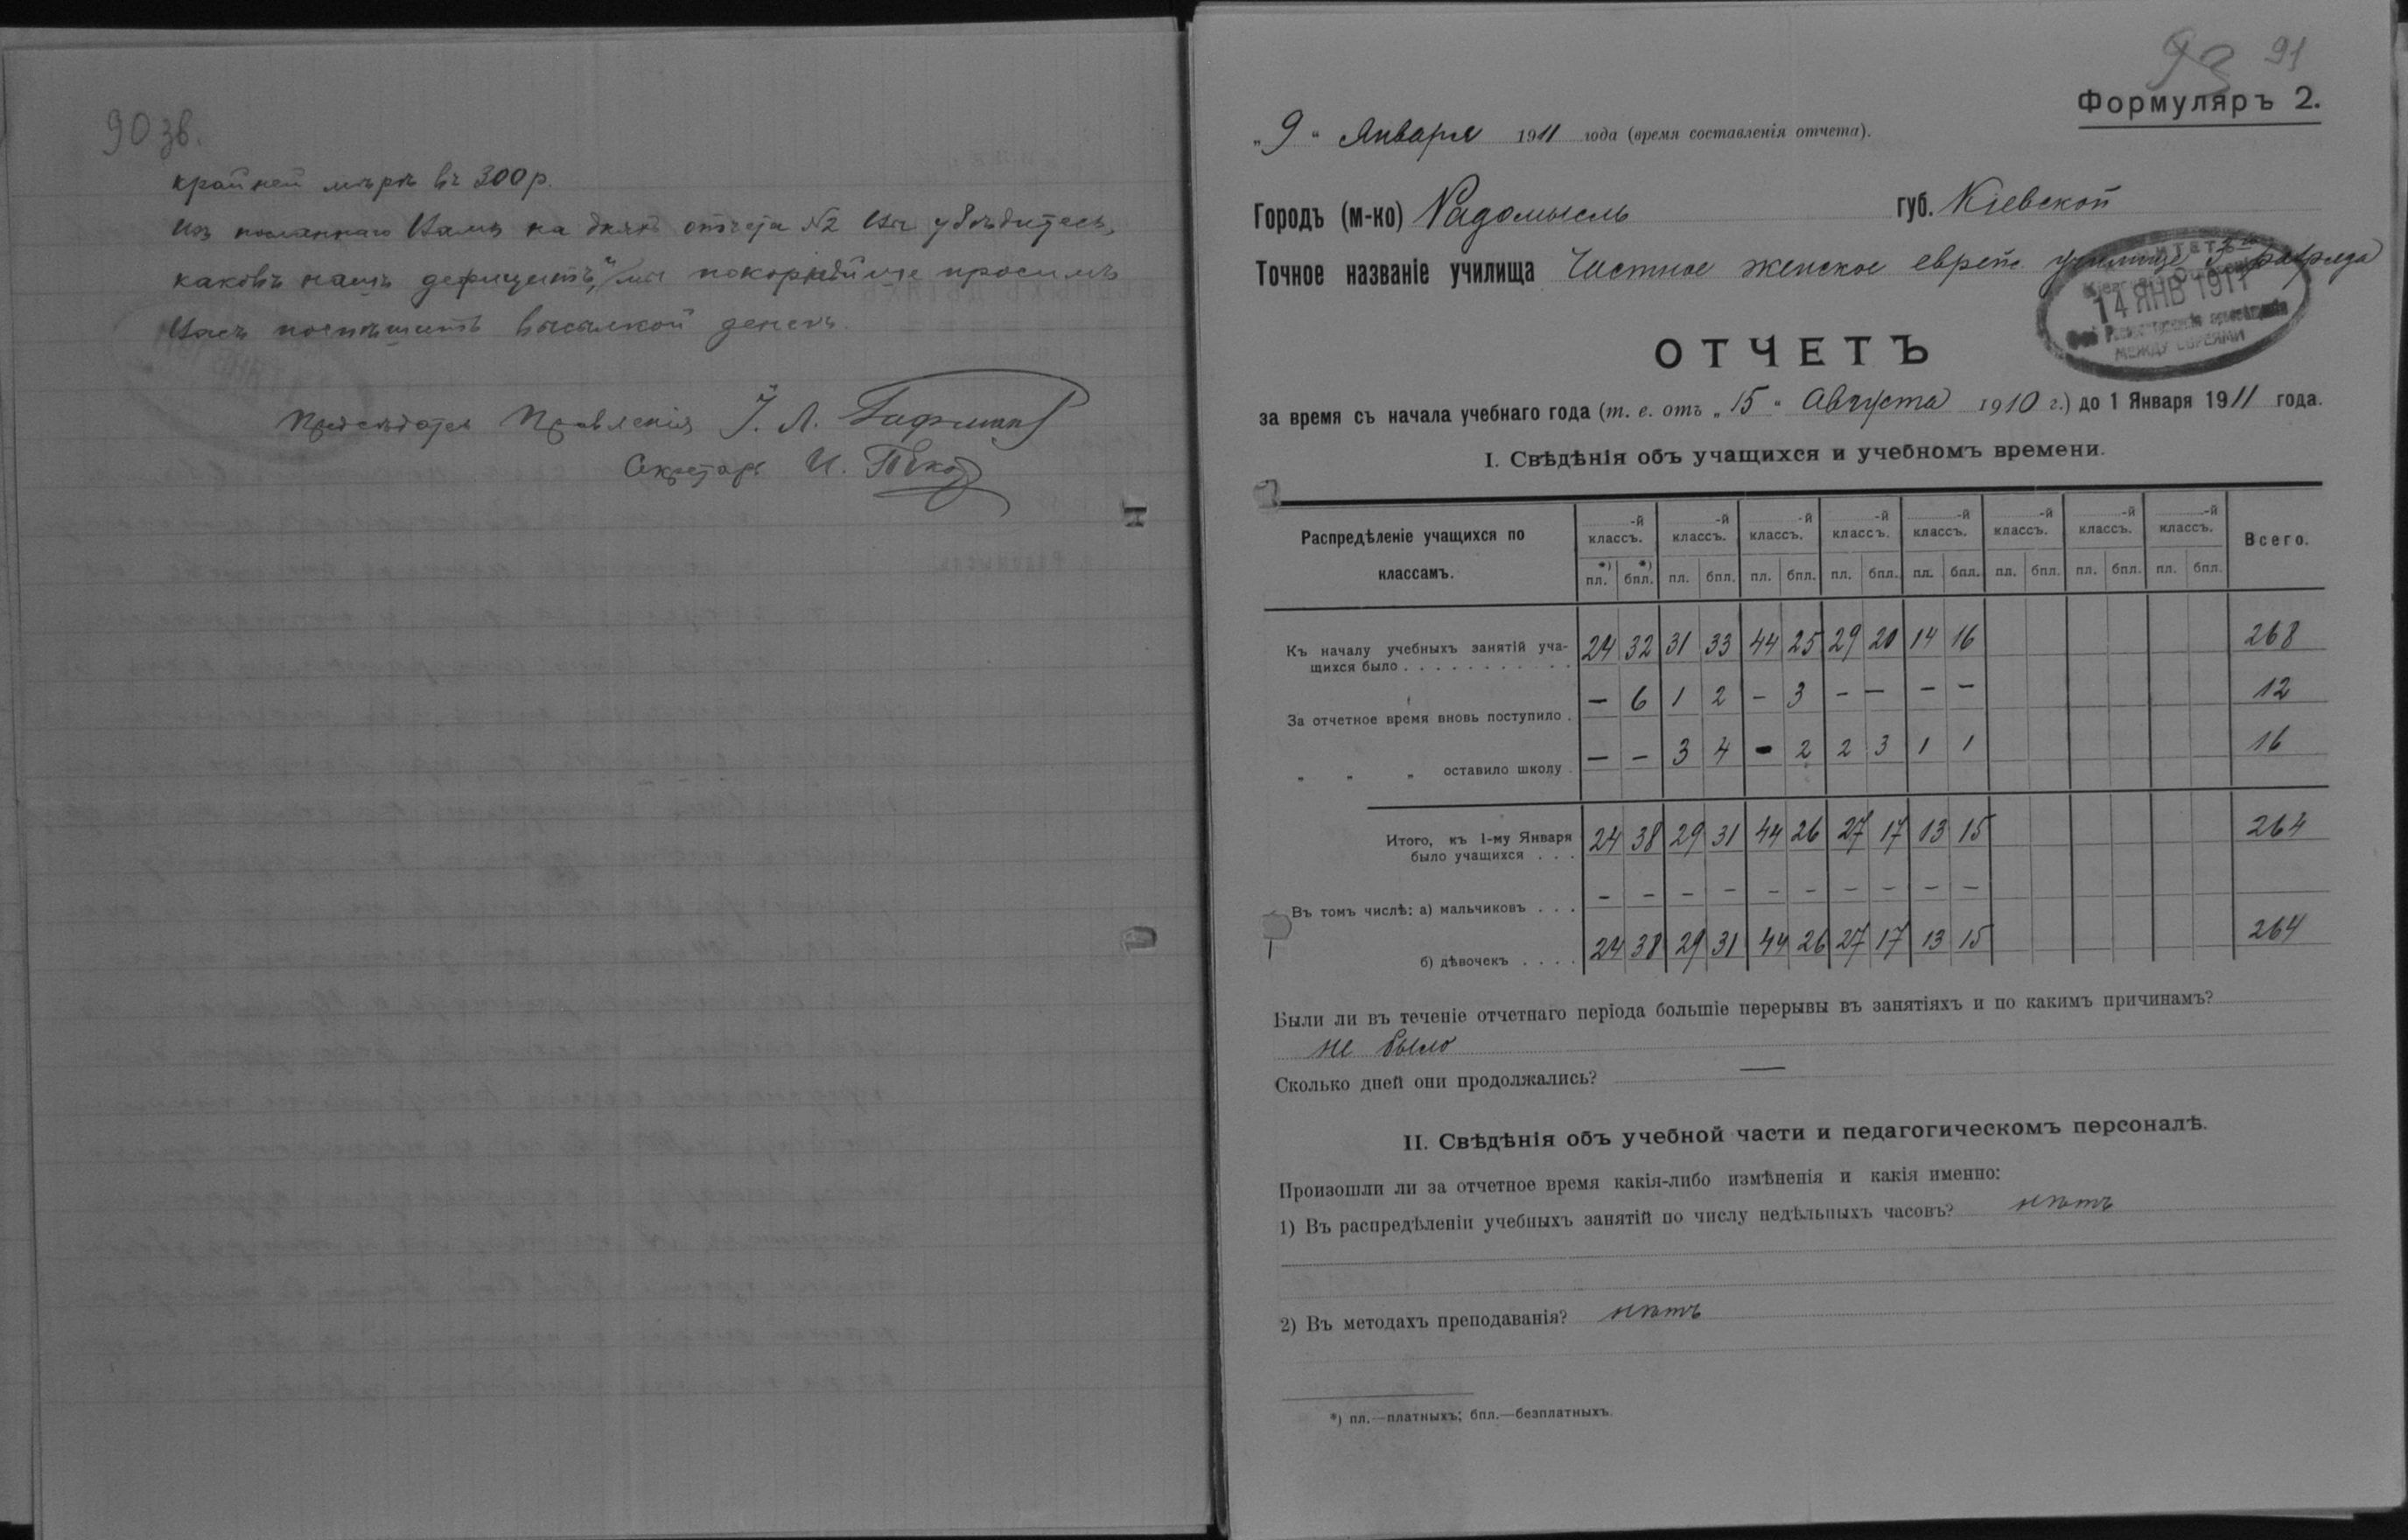 90 зв.
крайней мѣрѣ въ 300 р.
Изъ посланнаго Вамъ на дняхъ отчета №2 Вы убѣдитесь,
каковъ нашъ дефицитъ, и мы покорнѣйше просимъ
Васъ поспѣшить высылкой денегъ.
Предсѣдатель Правленія І. Л.
Секретарь И.
93 91
Формуляръ 2.
„9“ Января 1911 года (время составленія отчета).
Городъ (м-ко) Радомысль губ. Кіевской
Точное названіе училища Частное женское еврейс. училище 3го разряда
14 ЯНВ 1911
МЕЖДУ ЕВРЕЯМИ
ОТЧЕТЪ
за время съ начала учебнаго года (т. е. отъ „15“ Августа 1910 г.) до 1 Января 1911 года.
I. Свѣдѣнія объ учащихся и учебномъ времени.
Распредѣленіе учащихся по классамъ. -й классъ. -й классъ. -й классъ. -й классъ. -й классъ. -й классъ. -й классъ. -й классъ. Всего.
*) пл. *) бпл. пл. бпл. пл. бпл. пл. бпл. пл. бпл. пл. бпл. пл. бпл. пл. бпл.
Къ началу учебныхъ занятій уча-
щихся было . . . . . . . . . . . 24 32 31 33 44 25 29 20 14 16 268
За отчетное время вновь поступило . — 6 1 2 — 3 — — — — 12
„ „ „ оставило школу . — — 3 4 — 2 2 3 1 1 16
Итого, къ 1-му Января
было учащихся . . . 24 38 29 31 44 26 27 17 13 15 264
Въ томъ числѣ: а) мальчиковъ . . . — — — — — — — — — —
б) дѣвочекъ . . . . 24 38 29 31 44 26 27 17 13 15 264
Были ли въ теченіе отчетнаго періода большіе перерывы въ занятіяхъ и по какимъ причинамъ?
не было
Сколько дней они продолжались? —
II. Свѣдѣнія объ учебной части и педагогическомъ персоналѣ.
Произошли ли за отчетное время какія-либо измѣненія и какія именно:
1) Въ распредѣленіи учебныхъ занятій по числу недѣльныхъ часовъ? нѣтъ
2) Въ методахъ преподаванія? нѣтъ
*) пл.—платныхъ; бпл.—безплатныхъ.